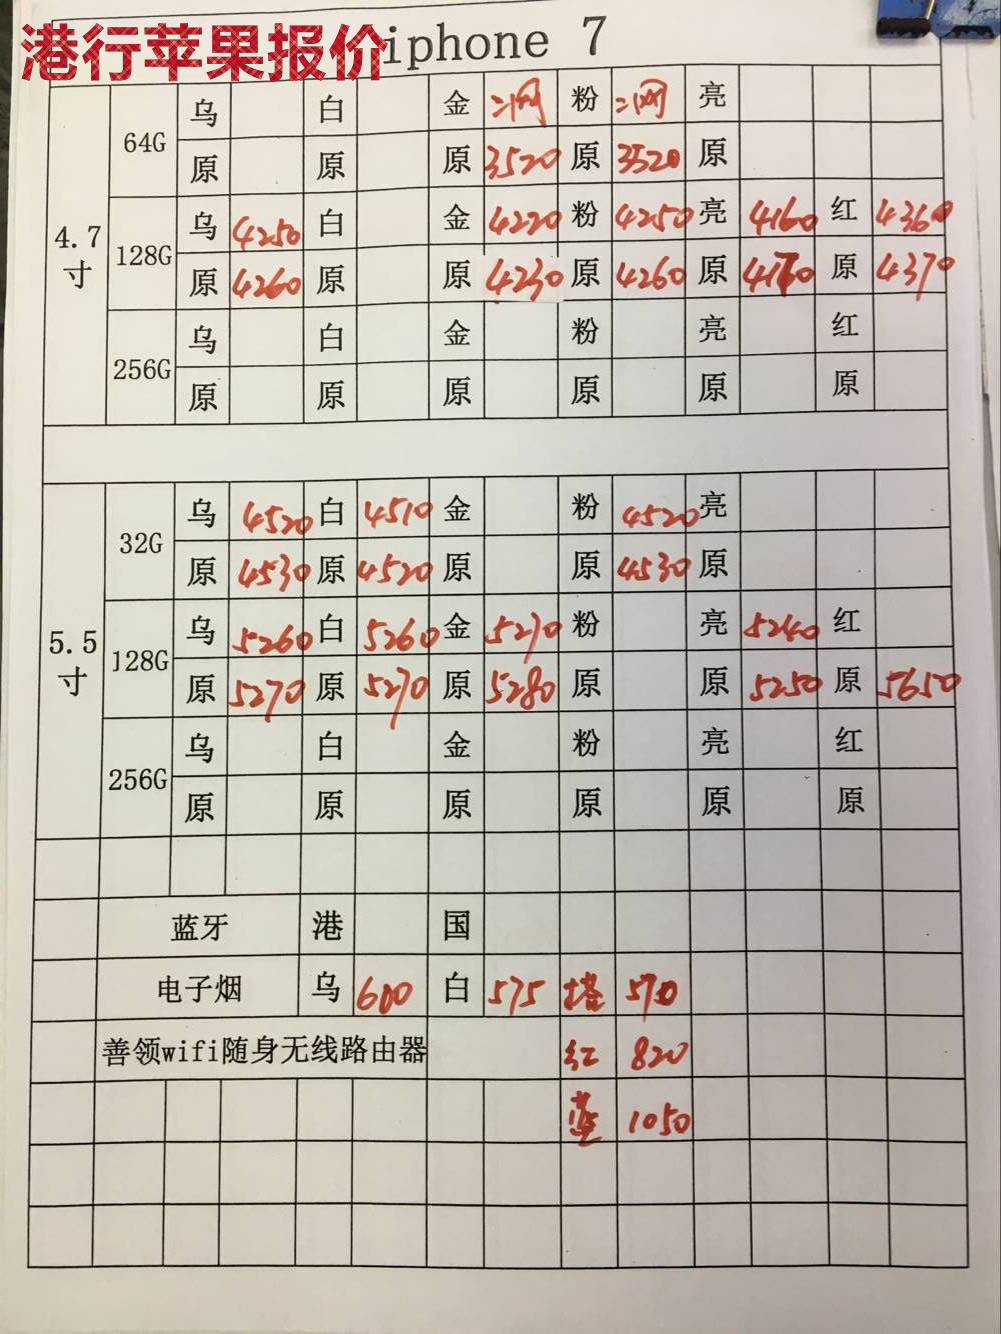 港行苹果报价
iphone 7
4.7寸
64G 乌 白 金 二网 粉 二网 亮
原 原 原 3520 原 3520 原
128G 乌 4250 白 金 4220 粉 4250 亮 4160 红 4360
原 4260 原 原 4230 原 4260 原 4170 原 4370
256G 乌 白 金 粉 亮 红
原 原 原 原 原 原
5.5寸
32G 乌 4520 白 4510 金 粉 4520 亮
原 4530 原 4520 原 原 4530 原
128G 乌 5260 白 5260 金 5270 粉 亮 5240 红
原 5270 原 5270 原 5280 原 原 5250 原 5650
256G 乌 白 金 粉 亮 红
原 原 原 原 原 原
蓝牙 港 国
电子烟 乌 600 白 575 塔 570
善领wifi随身无线路由器 红 820
蓝 1050